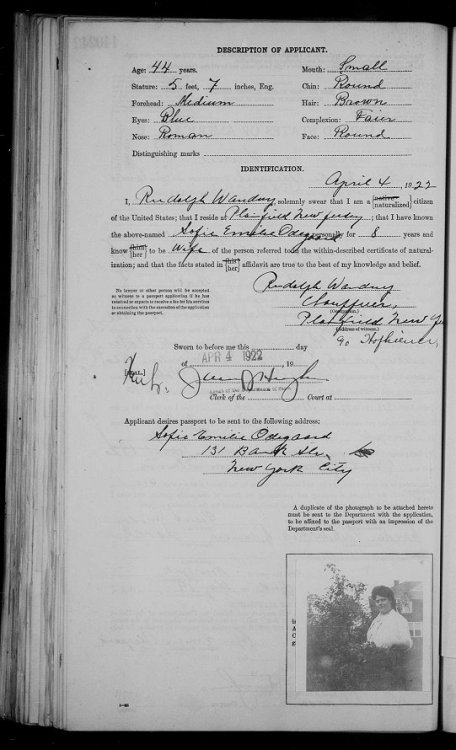 DESCRIPTION OF APPLICANT.
Age: 44 years. Mouth: Small
Stature: 5 feet, 7 inches, Eng. Chin: Round
Forehead: Medium Hair: Brown
Eyes: Blue Complexion: Fair
Nose: Roman Face: Round
Distinguishing marks
IDENTIFICATION.
April 4, 1922
I, Rudolph solemnly swear that I am a [native naturalized] citizen
of the United States; that I reside at Plainfield New Jersey; that I have known
the above-named Sofie Emilie Odegaard personally for 8 years and
know [him her] to be wife of the person referred to in the within-described certificate of natural-
ization; and that the facts stated in [his her] affidavit are true to the best of my knowledge and belief.
No lawyer or other person will be accepted
as witness to a passport application if he has
received or expects to receive a fee for his services
in connection with the execution of the application
or obtaining the passport.
Rudolph
Chauffeur,
(Occupation.)
Plainfield New
(Address of witness.)
Sworn to before me this day
of APR 4 1922, 19
[SEAL.]
Clerk of the Court at
Applicant desires passport to be sent to the following address:
Sofie Emilie Odegaard
131 Bank Str.
New York City
A duplicate of the photograph to be attached hereto
must be sent to the Department with the application,
to be affixed to the passport with an impression of the
Department's seal.